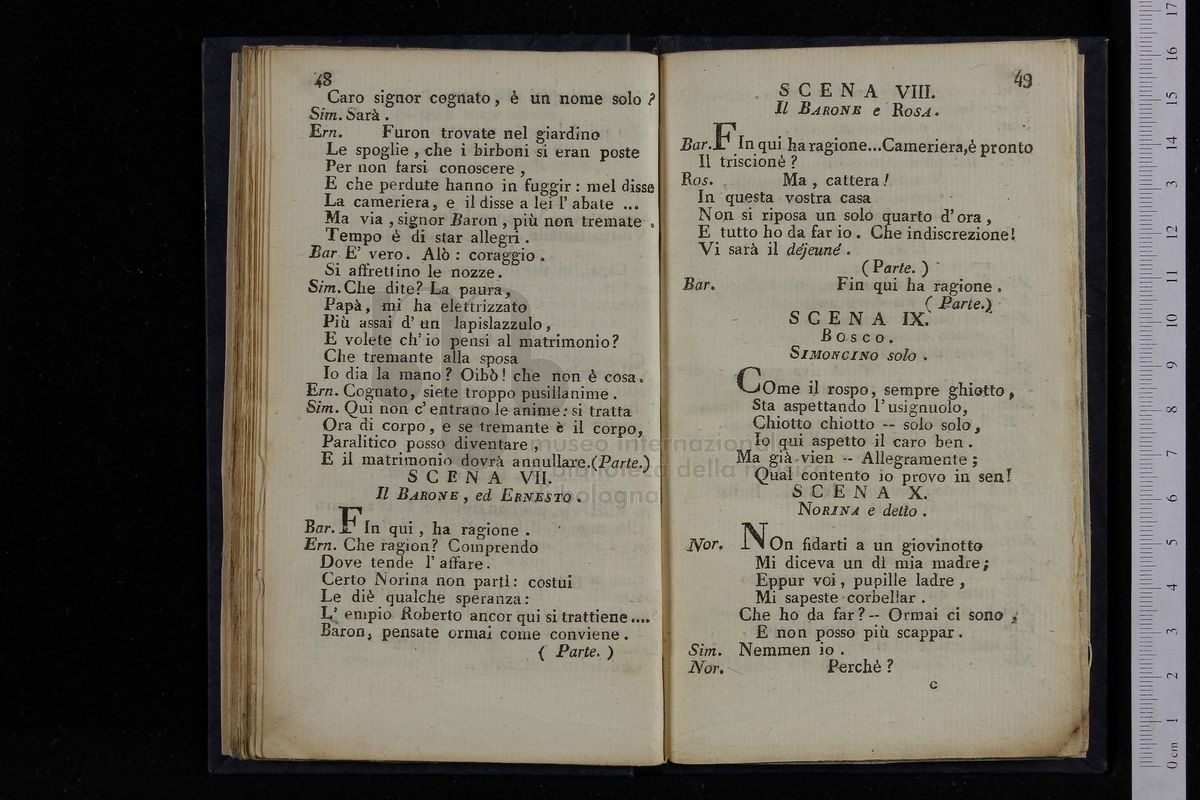 48
Caro signor cognato, è un nome solo?
Sim. Sarà.
Ern. Furon trovate nel giardino
Le spoglie, che i birboni si eran poste
Per non farsi conoscere,
E che perdute hanno in fuggir: mel disse
La cameriera, e il disse a lei l'abate ...
Ma via, signor Baron, più non tremate.
Tempo è di star allegri.
Bar E' vero. Alò: coraggio.
Si affrettino le nozze.
Sim. Che dite? La paura,
Papà, mi ha elettrizzato
Più assai d'un lapislazzulo,
E volete ch'io pensi al matrimonio?
Che tremante alla sposa
Io dia la mano? Oibò! che non è cosa.
Ern. Cognato, siete troppo pusillanime.
Sim. Qui non c'entrano le anime: si tratta
Ora di corpo, e se tremante è il corpo,
Paralitico posso diventare,
E il matrimonio dovrà annullare. (Parte.)
SCENA VII.
Il BARONE, ed ERNESTO.
Bar. FIn qui, ha ragione.
Ern. Che ragion? Comprendo
Dove tende l'affare.
Certo Norina non partì: costui
Le diè qualche speranza:
L'empio Roberto ancor qui si trattiene....
Baron, pensate ormai come conviene.
( Parte. )
49
SCENA VIII.
Il BARONE e ROSA.
Bar. FIn qui ha ragione... Cameriera, è pronto
Il triscionè?
Ros. Ma, cattera!
In questa vostra casa
Non si riposa un solo quarto d'ora,
E tutto ho da far io. Che indiscrezione!
Vi sarà il déjeuné.
( Parte. )
Bar. Fin qui ha ragione.
( Parte.)
SCENA IX.
Bosco.
SIMONCINO solo.
COme il rospo, sempre ghiotto,
Sta aspettando l'usignuolo,
Chiotto chiotto -- solo solo,
Io qui aspetto il caro ben.
Ma già vien -- Allegramente;
Qual contento io provo in sen!
SCENA X.
NORINA e detto.
Nor. NOn fidarti a un giovinotto
Mi diceva un dì mia madre;
Eppur voi, pupille ladre,
Mi sapeste corbellar.
Che ho da far? -- Ormai ci sono,
E non posso più scappar.
Sim. Nemmen io.
Nor. Perchè?
c
museo internazionale
biblioteca della musica
bologna
0 cm 1 2 3 4 5 6 7 8 9 10 11 12 13 14 15 16 17